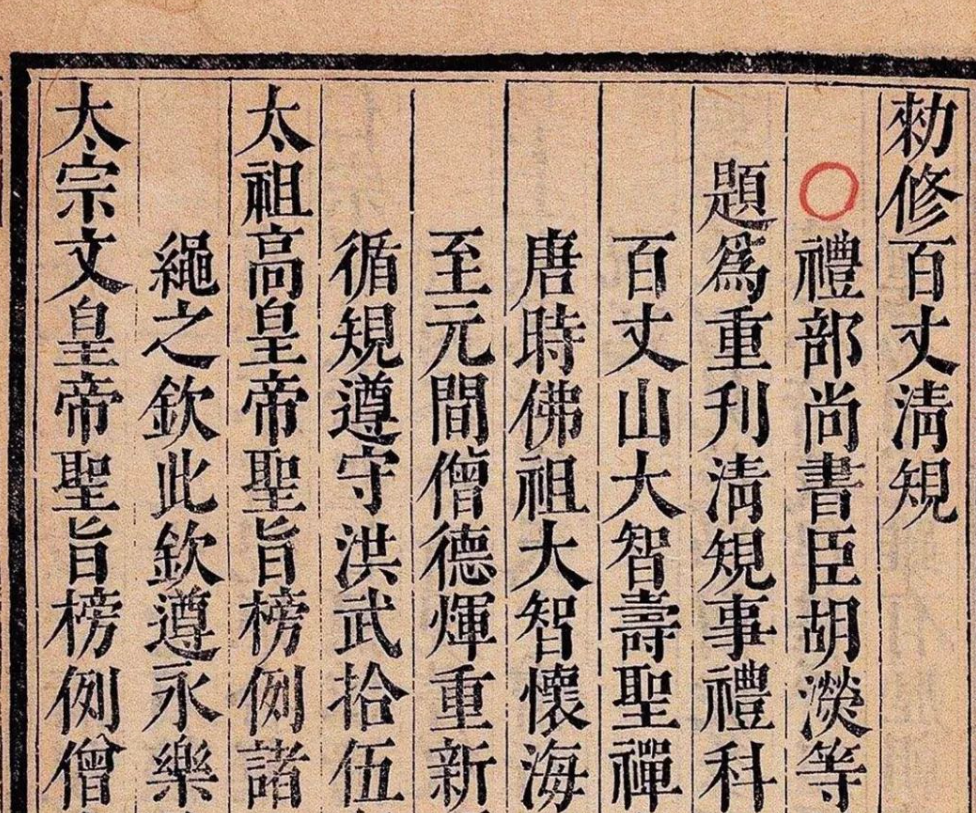 勑修百丈淸規
禮部尚書臣胡濙等
題爲重刊淸規事禮科
百丈山大智壽聖禪
唐時佛祖大智懷海
至元間僧德煇重新
循規遵守洪武拾伍
太祖高皇帝聖旨榜例諸
繩之欽此欽遵永樂
太宗文皇帝聖旨榜例僧